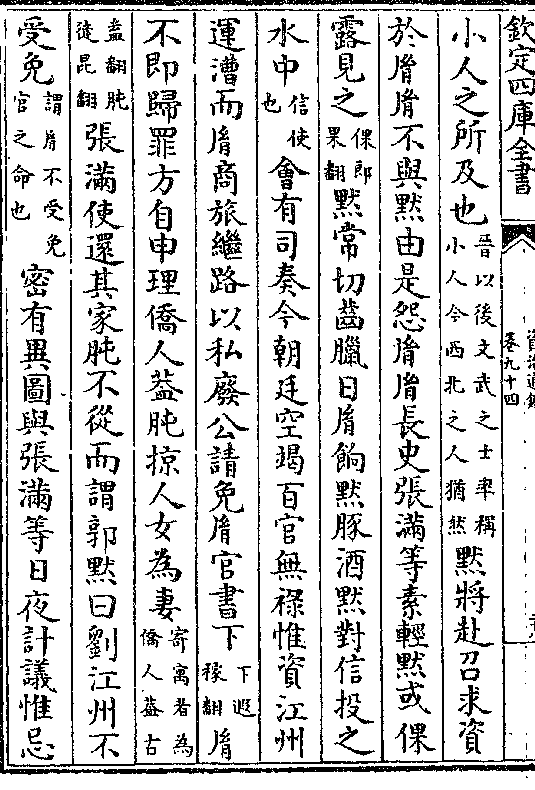 欽定四庫全書
卷九十四
小人之所及也晉以後文武之士率稱小人今西北之人猶然默將赴召求資
於胤胤不與默由是怨胤胤長史張滿等素輕默或倮
露見之倮郎果翻默常切齒臘日胤餉默豚酒默對信投之
水中信使也會有司奏今朝廷空竭百官無禄惟資江州
運漕而胤商旅繼路以私廢公請免胤官書下下遐稼翻胤
不即歸罪方自申理僑人葢肫掠人女為妻寄寓者為僑人葢古
盍翻肫徒昆翻張滿使還其家肫不從而謂郭默曰劉江州不
受免謂胤不受免官之命也密有異圖與張滿等日夜計議惟忌